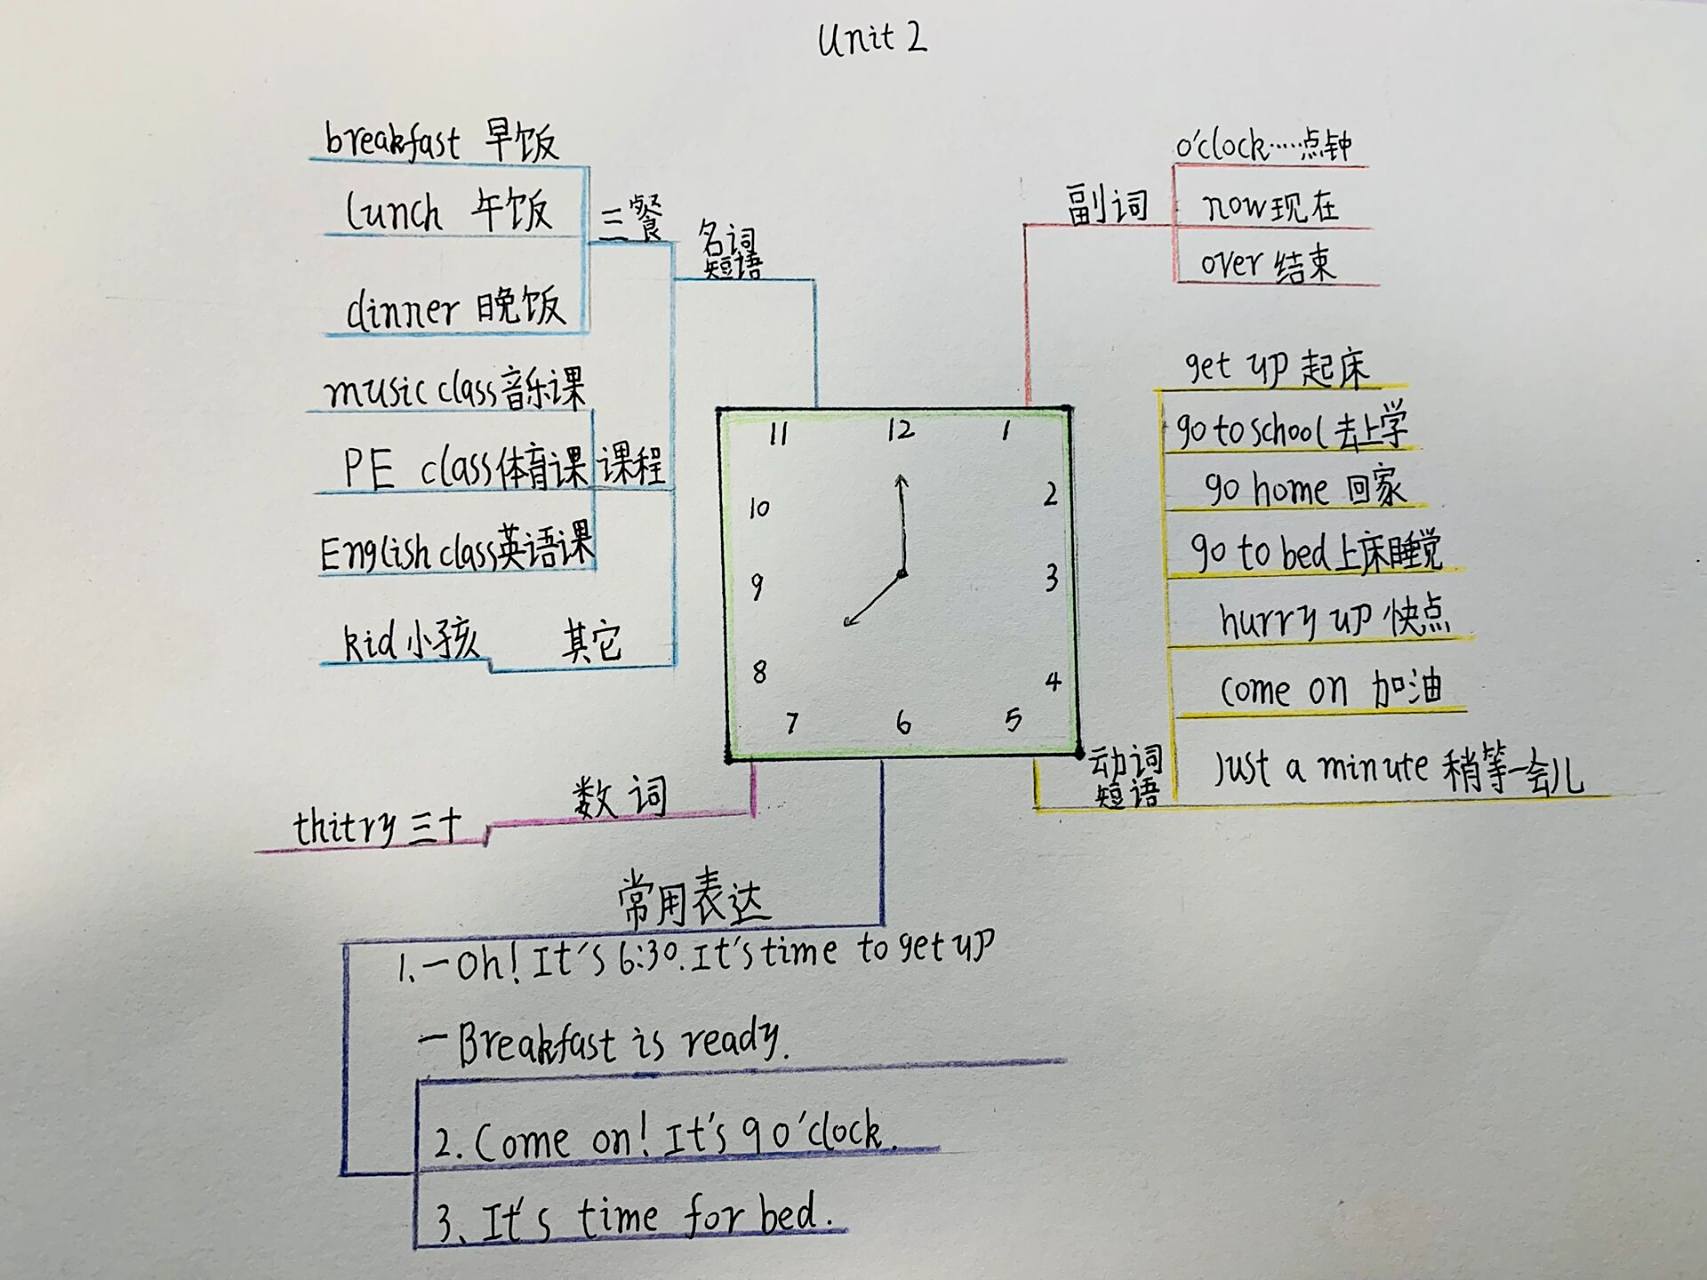 Unit 2
breakfast 早饭
lunch 午饭
dinner 晚饭
三餐
名词
短语
music class 音乐课
PE class 体育课
English class 英语课
课程
kid 小孩
其它
副词
o'clock……点钟
now 现在
over 结束
get up 起床
go to school 去上学
go home 回家
go to bed 上床睡觉
hurry up 快点
come on 加油
Just a minute 稍等一会儿
动词
短语
11 12 1
10 2
9 3
8 4
7 6 5
数词
thitry 三十
常用表达
1.—Oh! It's 6:30. It's time to get up
—Breakfast is ready.
2. Come on! It's 9 o'clock.
3、It's time for bed.